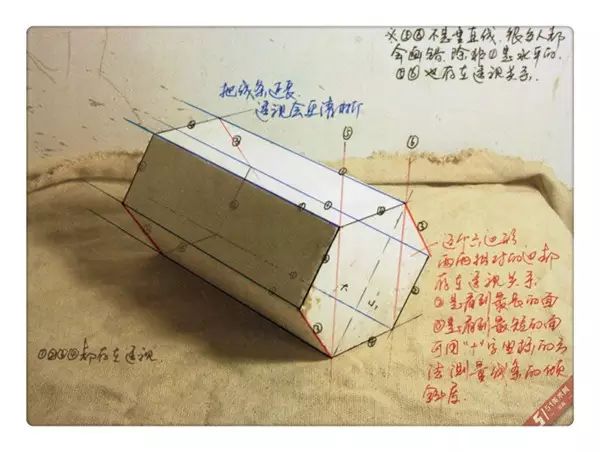 ※⑤⑥不是垂直线.很多人都
会画错.除非①是水平的.
⑤⑥也存在透视关系.
把线条延长.
透视会更清晰
⑤
⑥
这个六边形.
两两相对的边都
存在透视关系.
①是看到最长的面
③是看到最短的面
可用"十"字坐标的方
法测量线条的倾
斜度.
①②③④都存在透视.
大
小